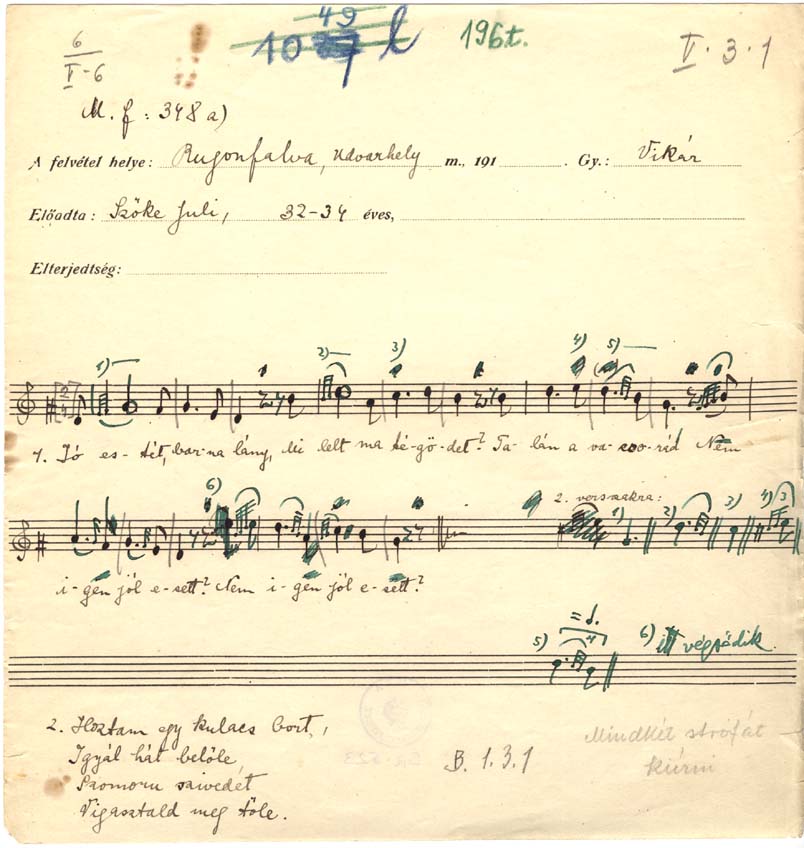 6
V-6
49
10 l
196t.
V.3.1
M.f: 348 a)
A felvétel helye: Rugonfalva, Udvarhely m., 191 . Gy.: Vikár
Előadta: Szőke Juli, 32-34 éves,
Elterjedtség:
1) 2) 3) 4) 5)
1. Jó es-tét, bar-na lány, Mi lelt ma té-gö-det? Ta-lán a va-cso-rád Nem
6) 2. versszakra: 1) 2) 3) 4)
i-gen jól e-sett? Nem i-gen jól e-sett?
5) 6) itt végződik.
2. Hoztam egy kulacs bort,
Igyál hát belőle,
Szomoru szivedet
Vigasztald meg tőle.
B. 1.3.1
Mindkét strófát
kiirni